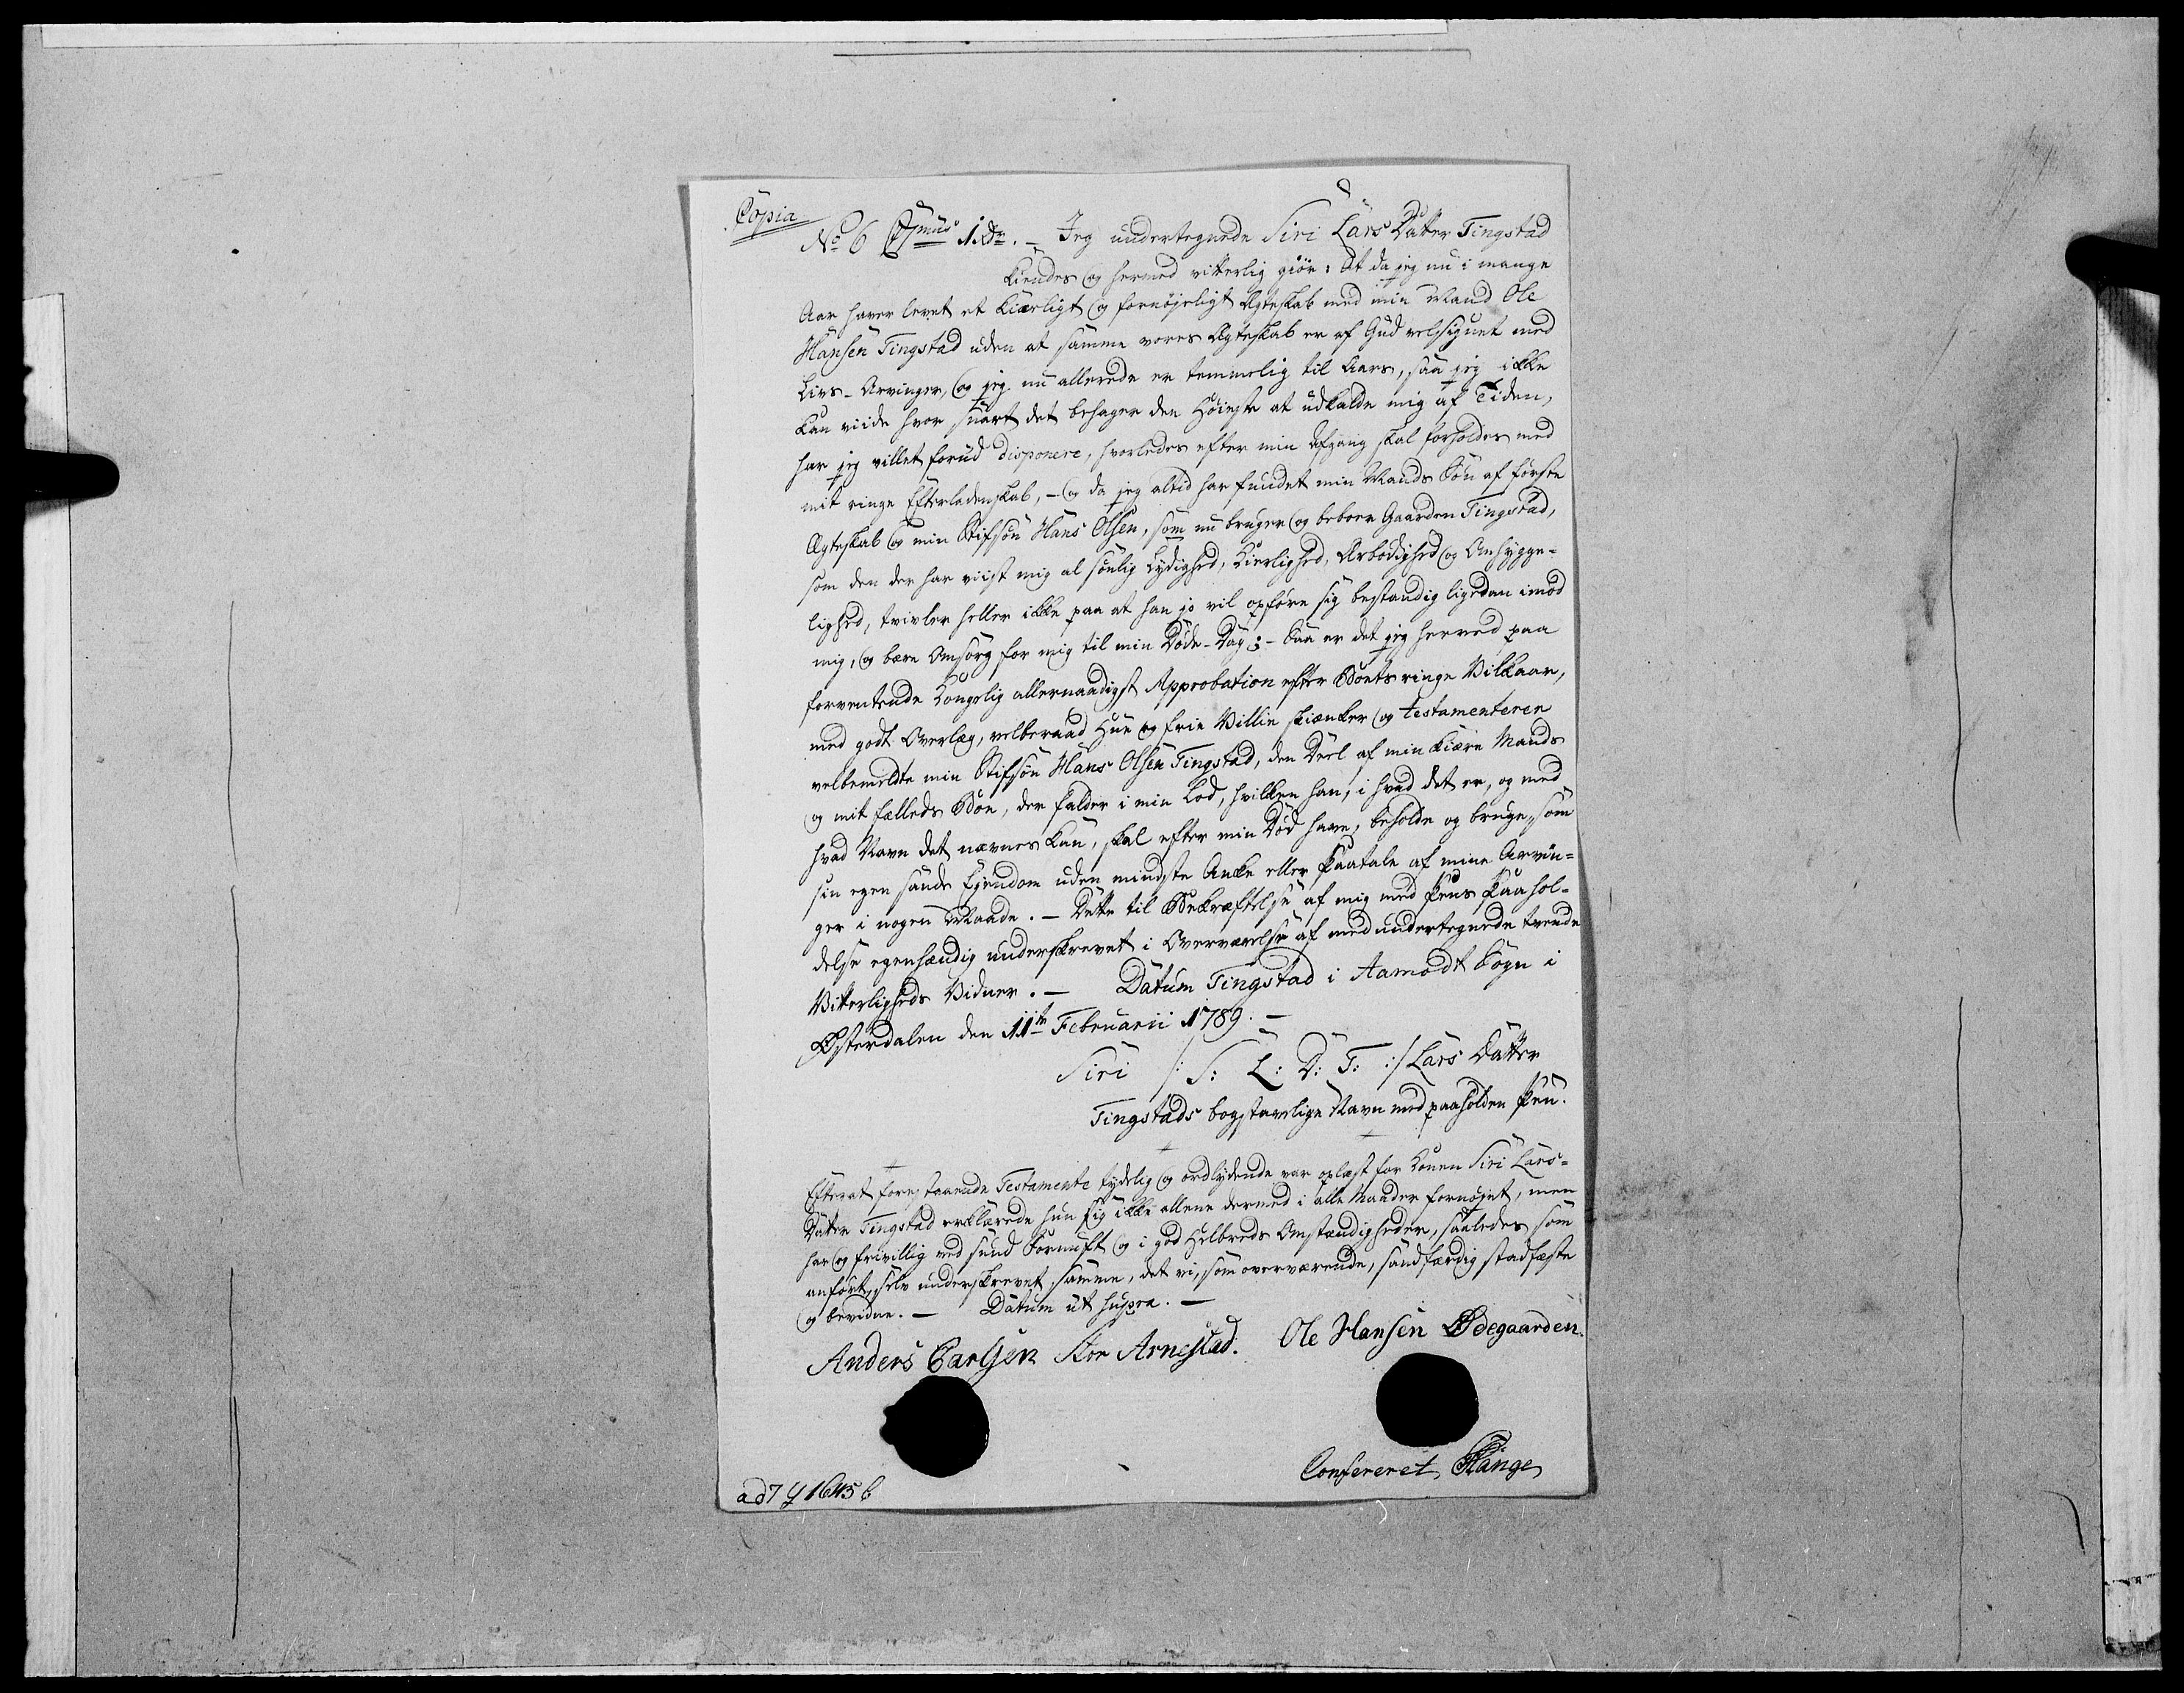 Copia
No 6 Ctmus 1 Rdr. – Jeg undertegnede Siri Lars Datter Tingstad
kiendes og hermed vitterlig giør: At da jeg nu i mange
Aar haver levet et kiærligt og fornøjeligt Ægteskab med min Mand Ole
Hansen Tingstad uden at samme vores Ægteskab er af Gud velsignet med
Livs-Arvinger, og jeg nu allerede er temmelig til Aars, saa jeg ikke
kan viide hvor snart det behager den Høieste at udkalde mig af Tiden,
har jeg villet forud disponere, hvorledes efter min Afgang skal forholdes med
mit ringe Efterladenskab, – og da jeg altid har fundet min Mands Søn af første
Ægteskab og min Stifsøn Hans Olsen, som nu bruger og beboer Gaarden Tingstad,
som den der har viist mig al sønlig Lydighed, Kierlighed, Ærbødighed og Omhygge=
lighed, tvivler heller ikke paa at han jo vil opføre sig bestandig ligedan imod
mig, og bære Omsorg for mig til min Døde-Dag; – Saa er det jeg herved paa
forventende Kongelig allernaadigst Approbation efter Boets ringe Vilkaar,
med godt Overlæg, velberaad Hue og frie Villie skiænker og testamenterer
velbemeldte min Stifsøn Hans Olsen Tingstad, den Deel af min kiære Mands
og mit fælleds Boe, der falder i min Lod, hvilken han, i hvad det er, og med
hvad Navn det nævnes kan, skal efter min Død have, beholde og bruge, som
sin egen sande Ejendom uden mindste Anke eller Paatale af mine Arvin=
ger i nogen Maade. – Dette til Bekræftelse af mig med Pens Paahol=
delse egenhændig underskrevet i Overværelse af medundertegnede tvende
Vitterligheds Vidner. – Datum Tingstad i Aamodt Sogn i
Østerdalen den 11te Februarii 1789. –
Siri /: S: L: D: T: :/ Lars Datter
Tingstads bogstavelige Navn med paaholden Pen.
Efterat forestaaende Testamente tydelig og ordlydende var oplæst for Konen Siri Lars=
Datter Tingstad erklærede hun sig ikke allene dermed i alle Maader fornøjet, men
har og frivillig ved sund Fornuft og i god Helbreds Omstændigheder, saaledes som
anført, selv underskrevet samme, det vi, som overværende, sandfærdig stadfæste
og bevidne. – Datum ut supra. –
Anders Carlsen Stor Arnestad. Ole Hansen Ødegaarden.
Confereret Stange
ad 7 1645 b